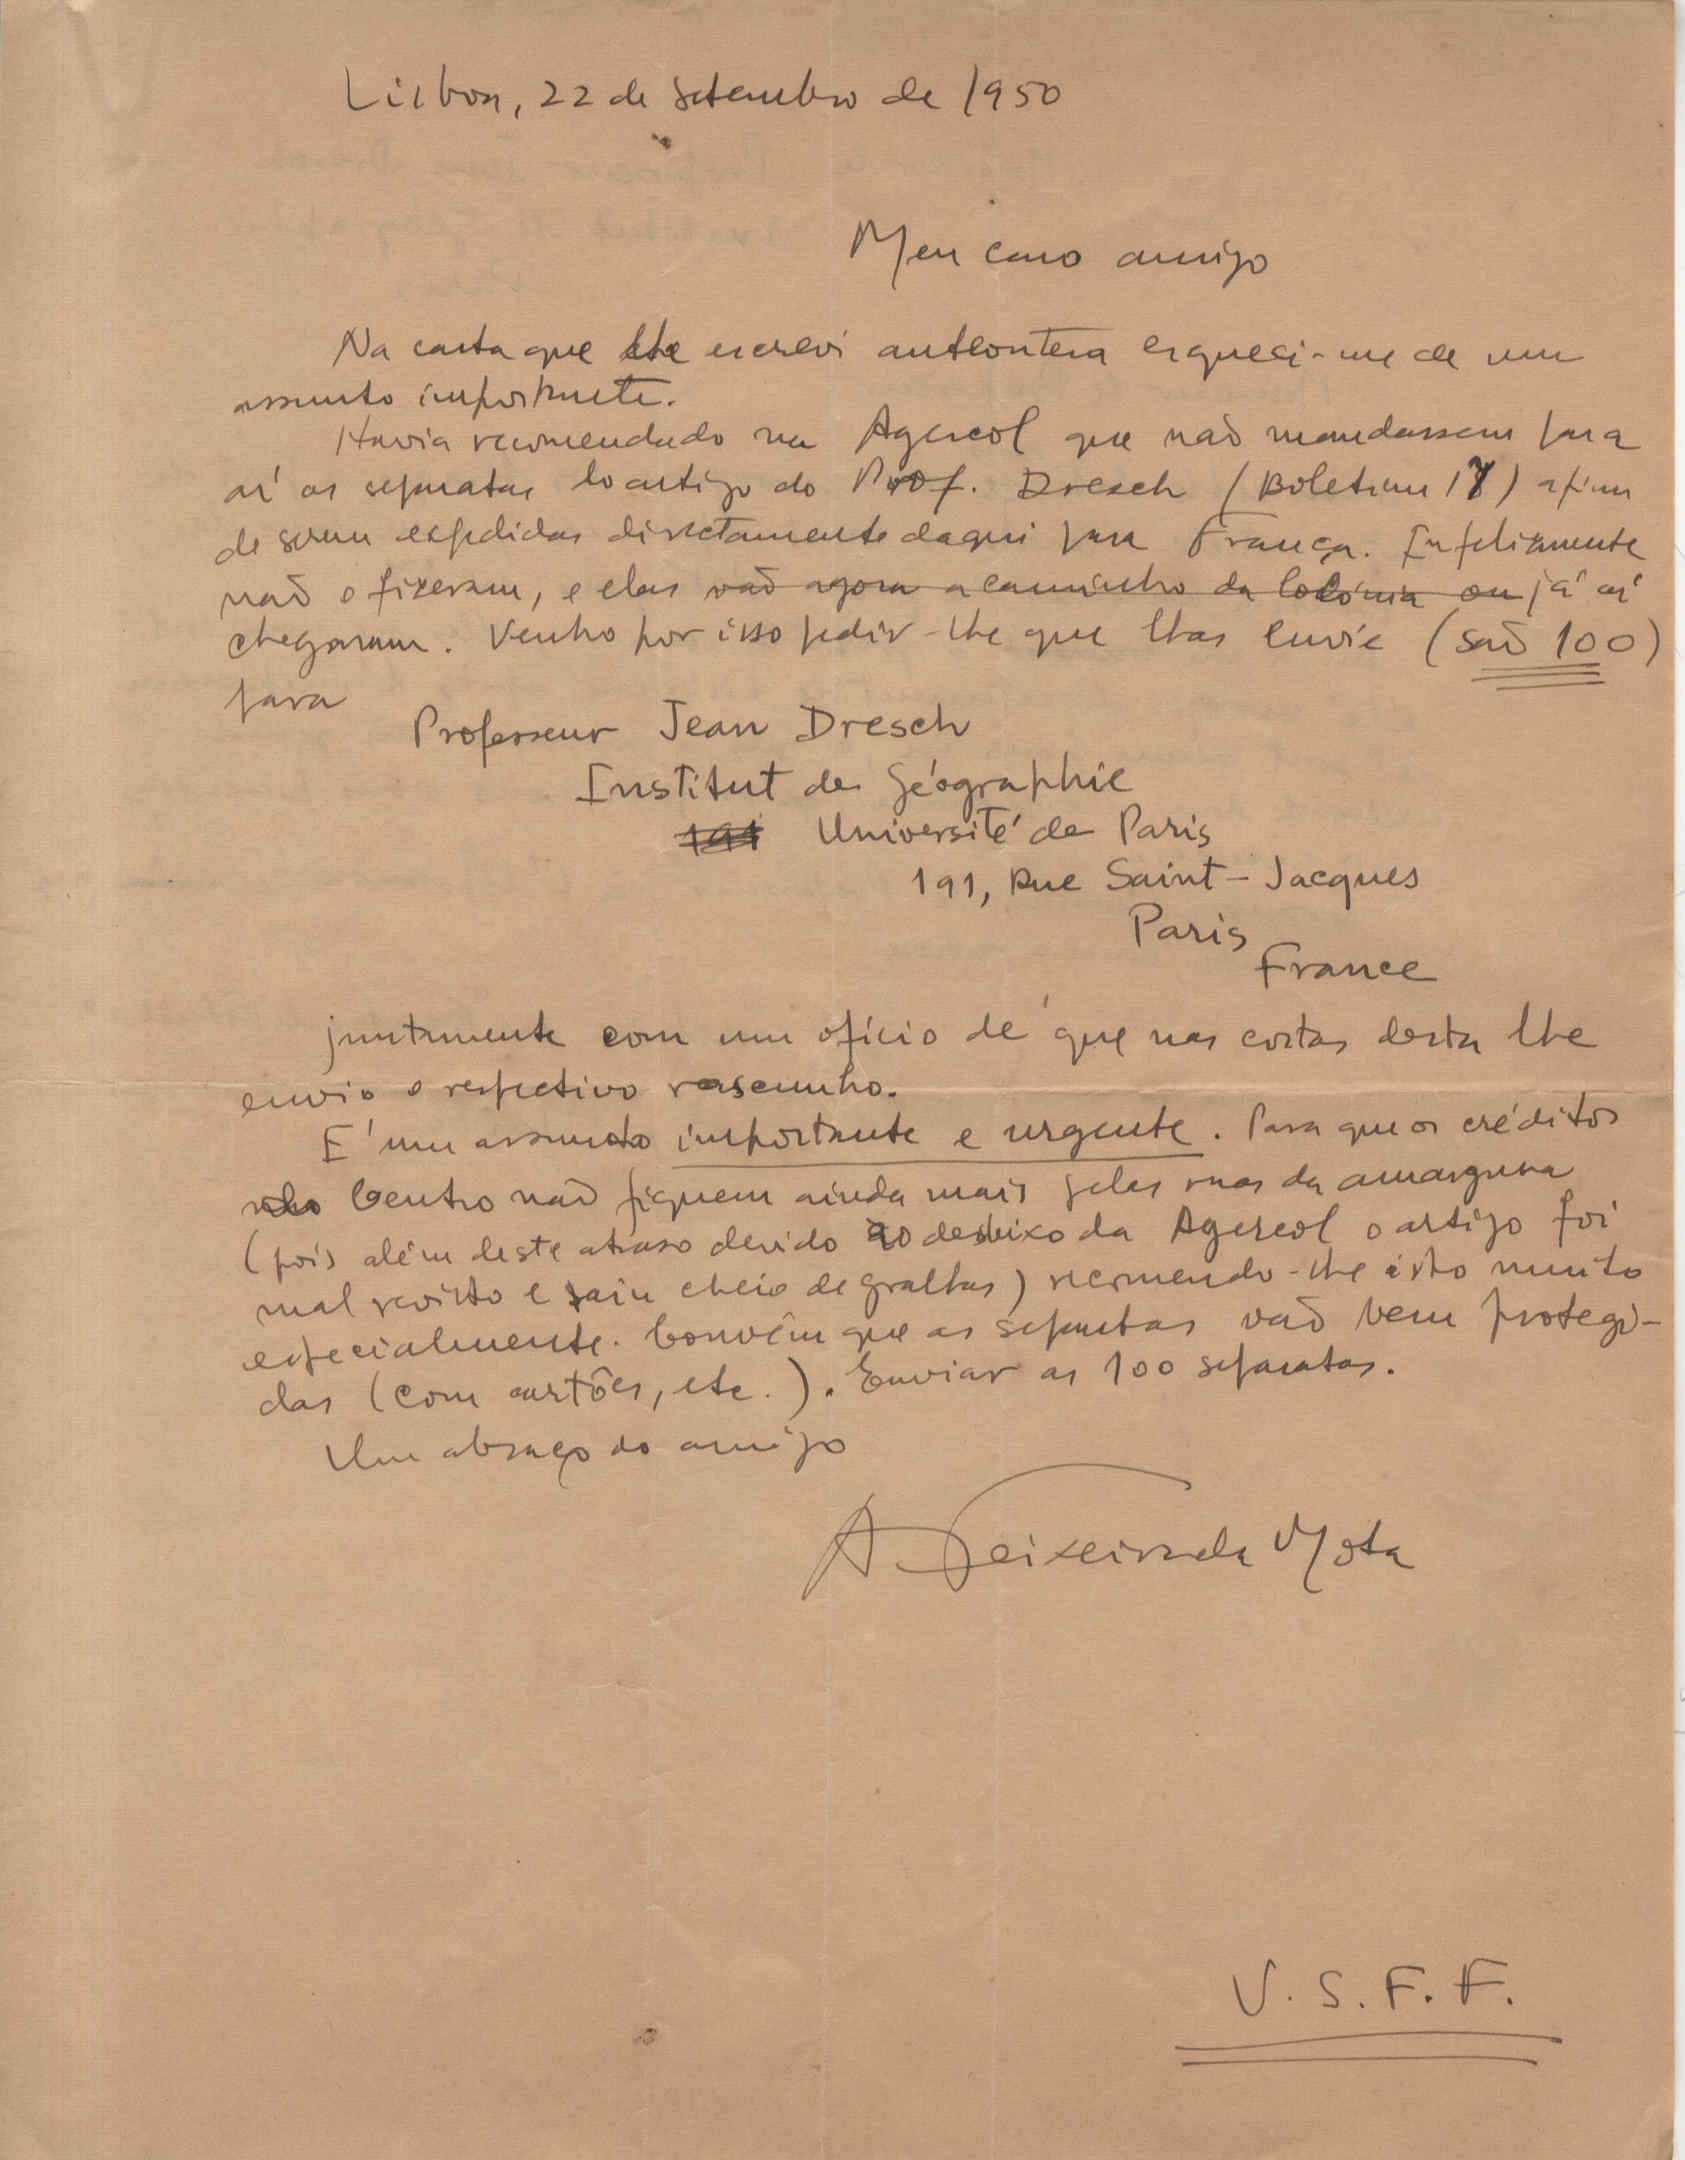 Lisboa, 22 de Setembro de 1950
Meu caro amigo
Na carta que lhe escrevi anteontem esqueci-me de um
assunto importante.
Havia recomendado na Agercol que não mandassem para
aí as separatas do artigo do Prof. Dresch (Boletim 17) afim
de serem expedidas directamente daqui para França. Infelizmente
não o fizeram, e elas vão agora a caminho da Colónia ou já aí
chegaram. Venho por isso pedir-lhe que lhas envie (são 100)
para
Professeur Jean Dresch
Institut de Géographie
191 Université de Paris
191, Rue Saint-Jacques
Paris
France
juntamente com um ofício de que nas costas desta lhe
envio o respectivo rascunho.
É um assunto importante e urgente. Para que os créditos
do Centro não fiquem ainda mais pelas ruas da amargura
(pois além deste atraso devido ao desleixo da Agercol o artigo foi
mal revisto e saiu cheio de gralhas) recomendo-lhe isto muito
especialmente. Convém que as separatas vão bem protegi-
das (com cartões, etc.). Enviar as 100 separatas.
Um abraço do amigo
A Teixeira da Mota
V. S. F. F.